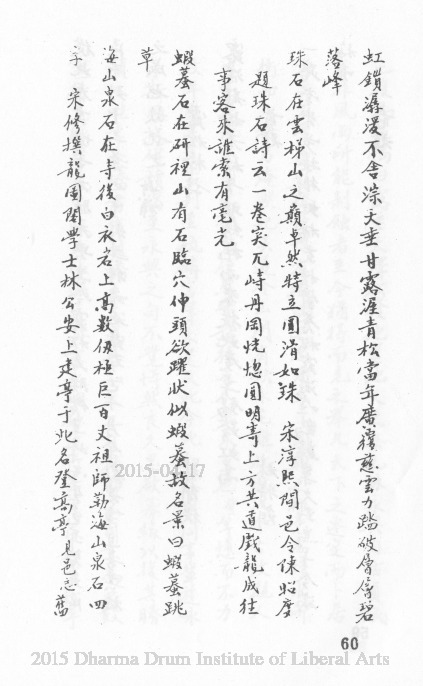 虹鎖潺湲不舍淙天垂甘露涯青松當年廣種慈雲力踏破層層碧
落峰
珠石在雲梯山之巔卓然特立圓滑如珠 宋淳熙間邑令陳昭度
題珠石詩云一卷突兀峙丹岡恍惚圓明壽上方共道戲龍成往
事客來誰索有毫光
蝦蟇石在研裡山有石臨穴伸頭欲躍狀似蝦蟇故名景曰蝦蟇跳
草
海山泉石在寺後白衣岩上高數仞極巨百丈祖師勒海山泉石四
字 宋修撰龍圖閣學士林公安上建亭于此名登高亭見邑志舊
60
2015-04-17
2015 Dharma Drum Institute of Liberal Arts